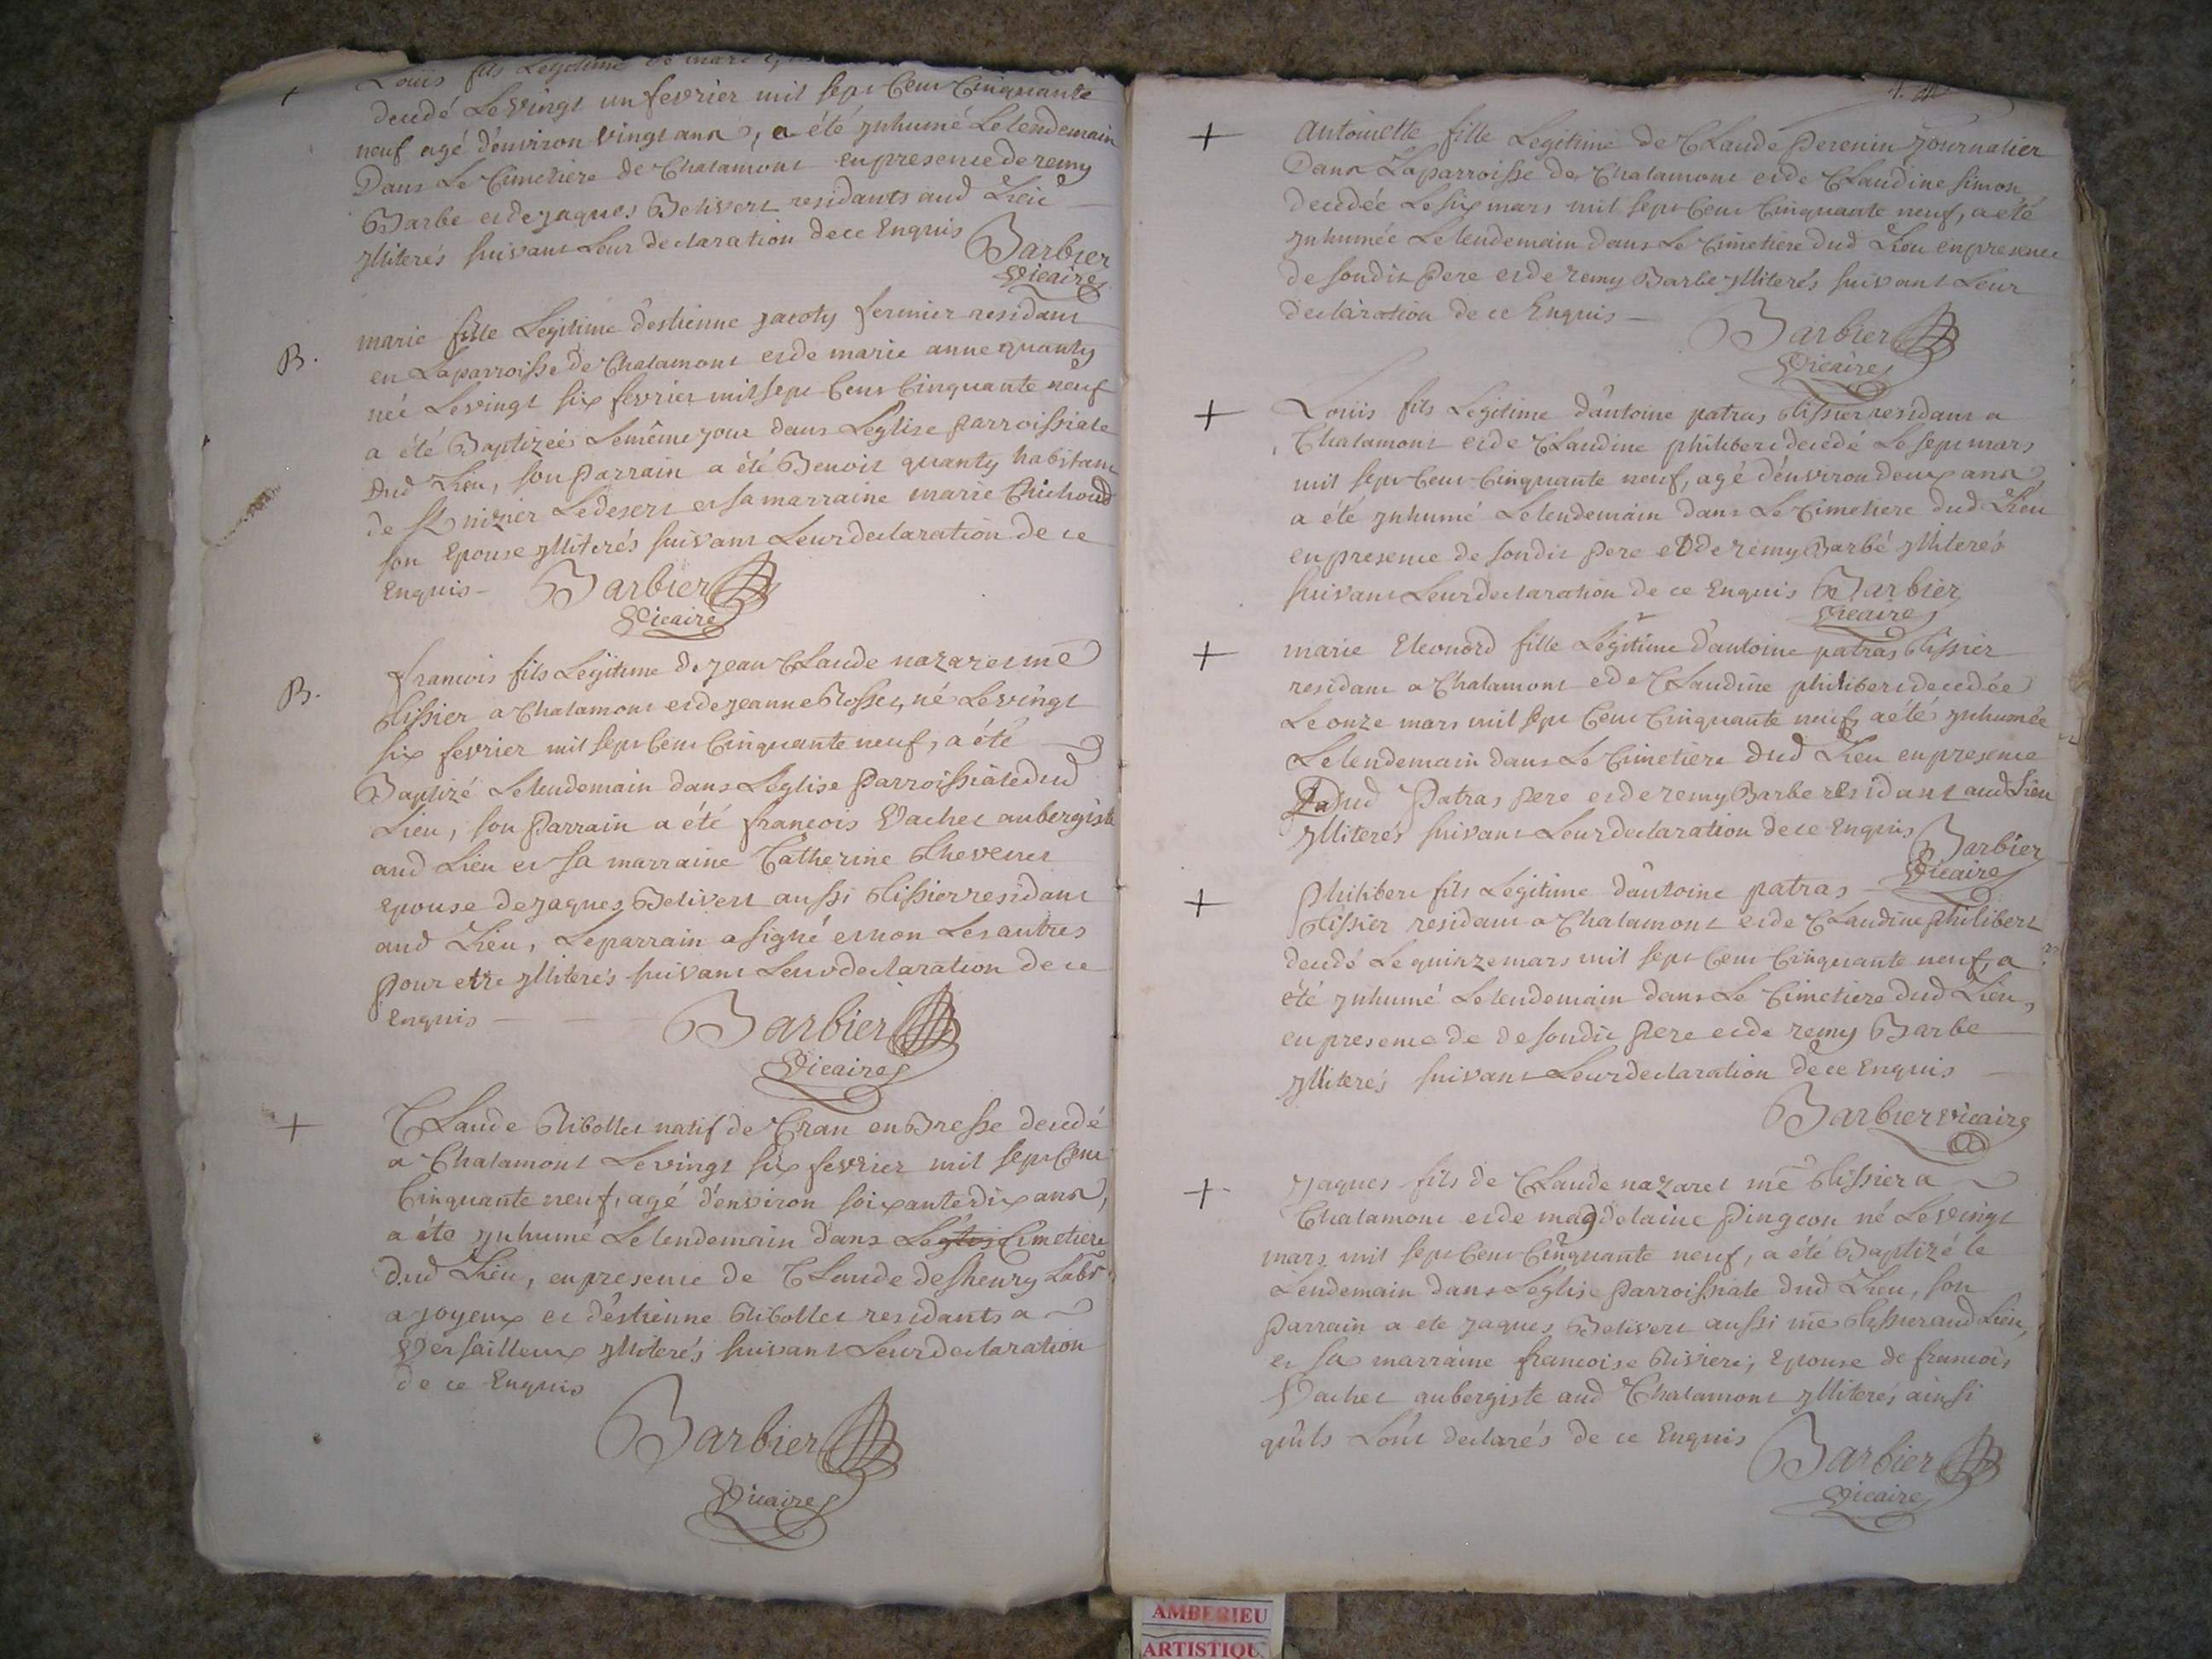 Louis fils Legitime de
decedé Le vingt un fevrier mil sept Cent Cinquante
neuf agé d'environ vingt ans, a été ynhumé Lelendemain
Dans Le Cimetiere de Chalamont en presence de remy
Barbe et de jaques Belivert residants aud Lieu
ylliterés suivant Leur declaration de ce Enquis
Barbier
Vicaire
B.
marie fille Legitime d'estienne jacoty fermier residant
en Laparroisse de Chalamont et de marie anne quanty
née Levingt six fevrier mil sept Cent Cinquante neuf
a été Baptizée Lemême jour dans Leglise parroissiale
dud Lieu, son parrain a été Benoit quanty habitant
de St nizier Ledesert et sa marraine marie
son Epouse ylliterés suivant Leur declaration de ce
Enquis - Barbier
Vicaire
B.
francois fils Legitime de jean CLaude nazaret me
tissier a Chalamont et de jeanne Rosset, né Levingt
six fevrier mil sept Cent Cinquante neuf, a été
Baptizé Lelendemain dans Leglise parroissiale dud
Lieu, son parrain a été francois Vachet aubergiste
aud Lieu et sa marraine Catherine thevenet
epouse de jaques Belivert aussi tissier residant
aud Lieu, Leparrain a signé et non Les autres
pour etre ylliterés suivant Leur declaration de ce
Enquis
Barbier
Vicaire
+
CLaude Ribollet natif de Cran en Bresse decedé
a Chalamont Levingt six fevrier mil sept Cent
Cinquante neuf, agé d'environ soixante dix ans,
a été ynhumé Lelendemain dans Cimetiere
dud Lieu, en presence de CLaude desheury Labr
a joyeux et d'estienne Ribollet residants a
Versailleux ylliterés suivant Leur declaration
de ce Enquis
Barbier
Vicaire
+
antoinette fille Legitime de CLaude perenin journalier
Dans Laparroisse de Chalamont et de CLaudine simon
decedée Le six mars mil sept Cent Cinquante neuf, a été
ynhumée Lelendemain dans Le Cimetiere dud Lieu en presence
de sondit pere et de remy Barbe ylliterés suivant Leur
declaration de ce Enquis
Barbier
Vicaire
+
Louis fils Legitime d'antoine patras tissier residant a
Chalamont et de CLaudine philibert decedé Le sept mars
mil sept Cent Cinquante neuf, agé d'environ deux ans
a été ynhumé Lelendemain dans Le Cimetiere dud Lieu
en presence de sondit pere et de remy Barbé ylliterés
suivant Leur declaration de ce Enquis Barbier
Vicaire
+
marie Eleonord fille Legitime d'antoine patras tissier
residant a Chalamont et de CLaudine philibert decedée
Le onze mars mil sept Cent Cinquante neuf, a été ynhumée
Lelendemain dans Le Cimetiere dud Lieu en presence
dud patras pere et de remy Barbe residant aud Lieu
ylliterés suivant Leur declaration de ce Enquis Barbier
Vicaire
+
philibert fils Legitime d'antoine patras
tissier residant a Chalamont et de CLaudine philibert
decedé Le quinze mars mil sept Cent Cinquante neuf, a
été ynhumé Lelendemain dans Le Cimetiere dud Lieu,
en presence de de sondit pere et de remy Barbe
ylliterés suivant Leur declaration de ce Enquis
Barbier vicaire
+
jaques fils de CLaude nazaret me tissier a
Chalamont et de magdelaine pingeon né Levingt
mars mil sept Cent Cinquante neuf, a été Baptizé le
Lendemain dans Leglise parroissiale dud Lieu, son
parrain a ete jaques Belivert aussi me tissier aud Lieu,
et sa marraine francoise Riviere, Epouse de francois
Vachet aubergiste aud Chalamont ylliterés ainsi
quils L'ont declarés de ce Enquis
Barbier
Vicaire
AMBERIEU
ARTISTIQU